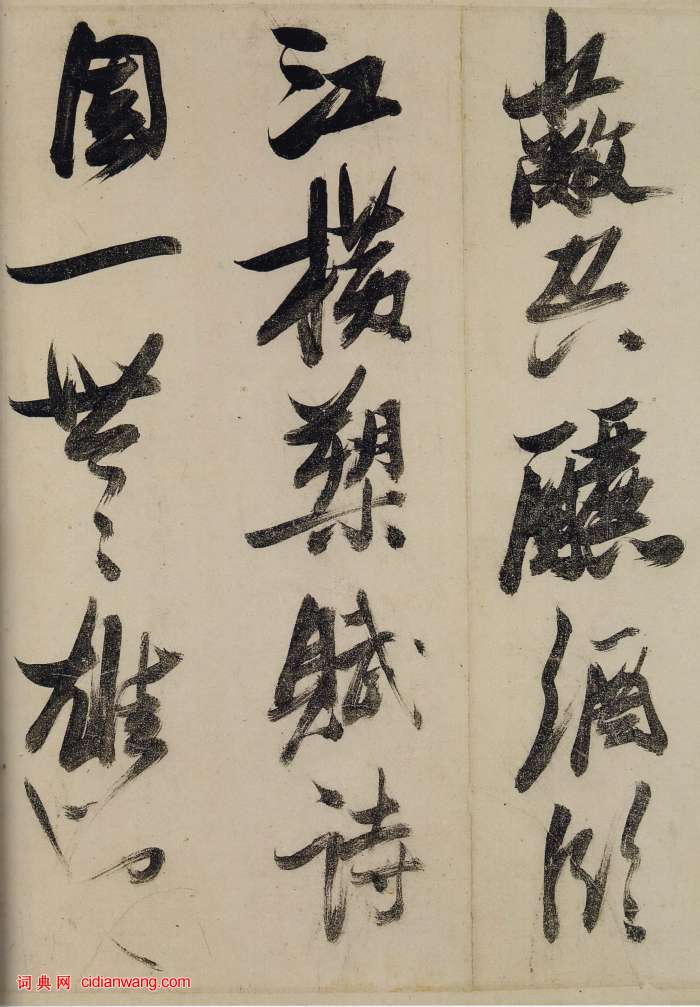 蔽空釃酒臨
江橫槊賦詩
固一世之雄也
词典网 cidianwang.com